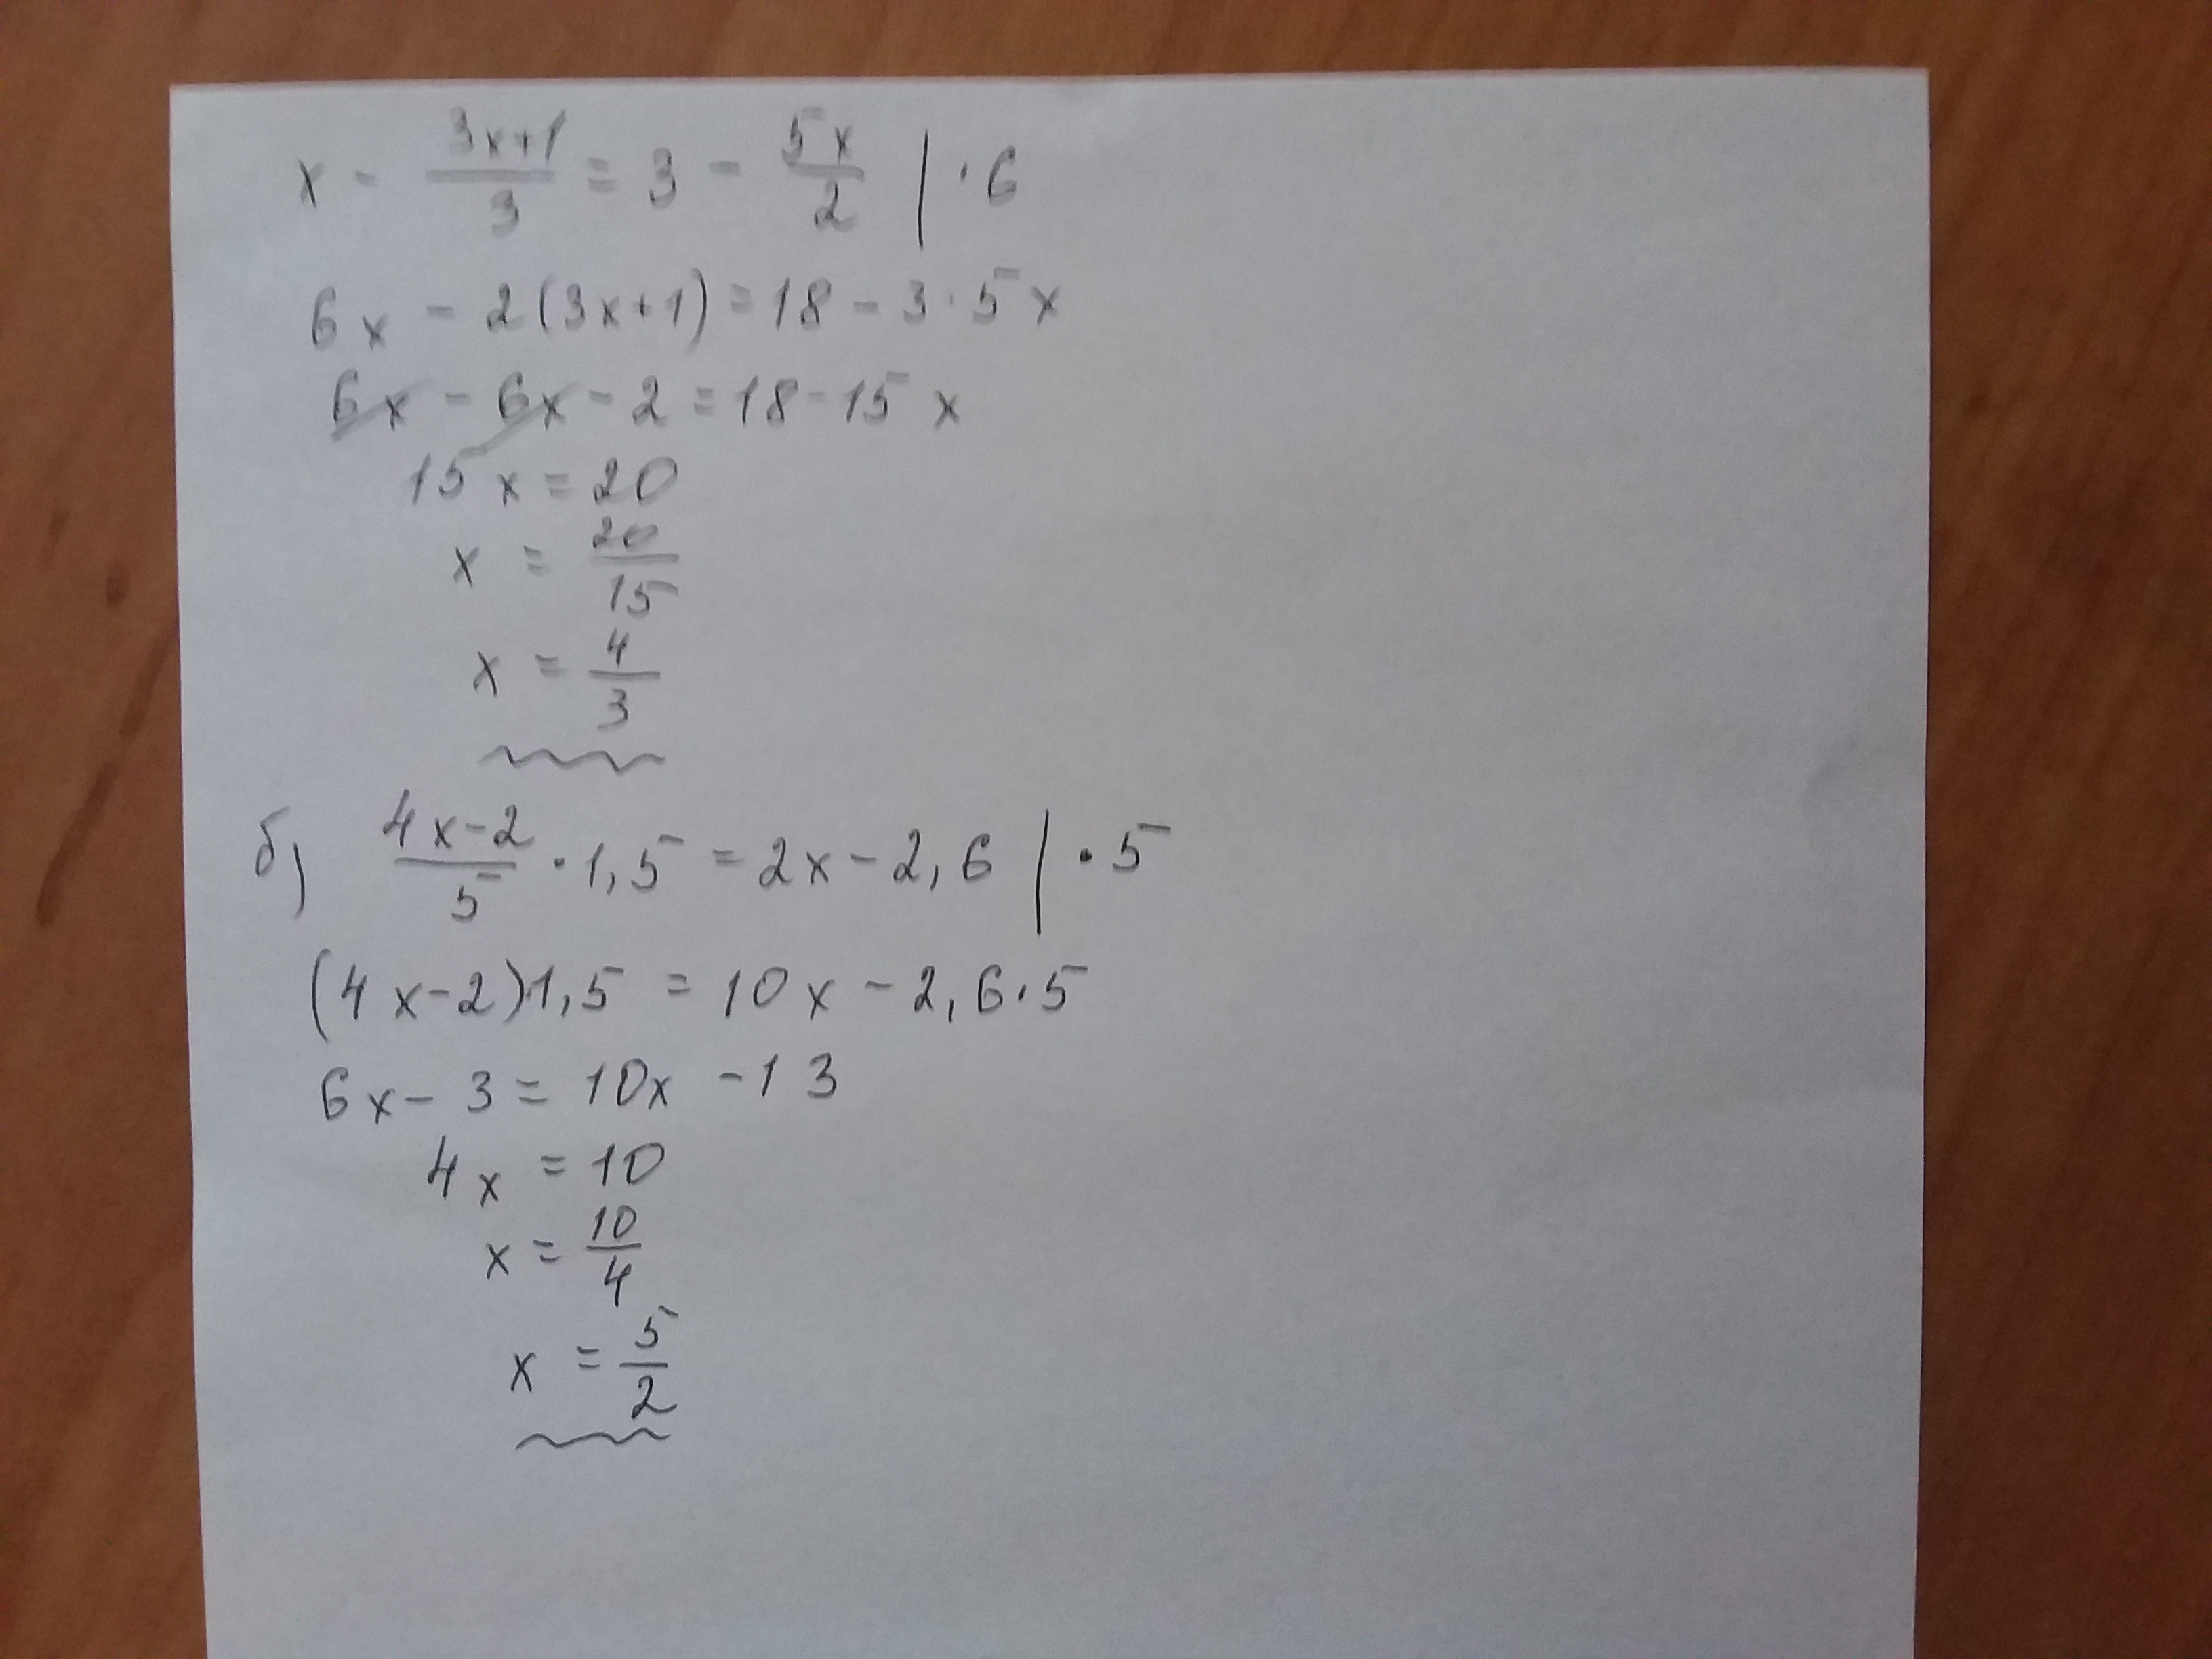 x - \frac{3x+1}{3} = 3 - \frac{5x}{2} | · 6
6x - 2(3x+1) = 18 - 3 · 5x
6x - 6x - 2 = 18 - 15x
15x = 20
x = \frac{20}{15}
x = \frac{4}{3}
б) \frac{4x-2}{5} · 1,5 = 2x - 2,6 | · 5
(4x-2)1,5 = 10x - 2,6 · 5
6x - 3 = 10x - 13
4x = 10
x = \frac{10}{4}
x = \frac{5}{2}